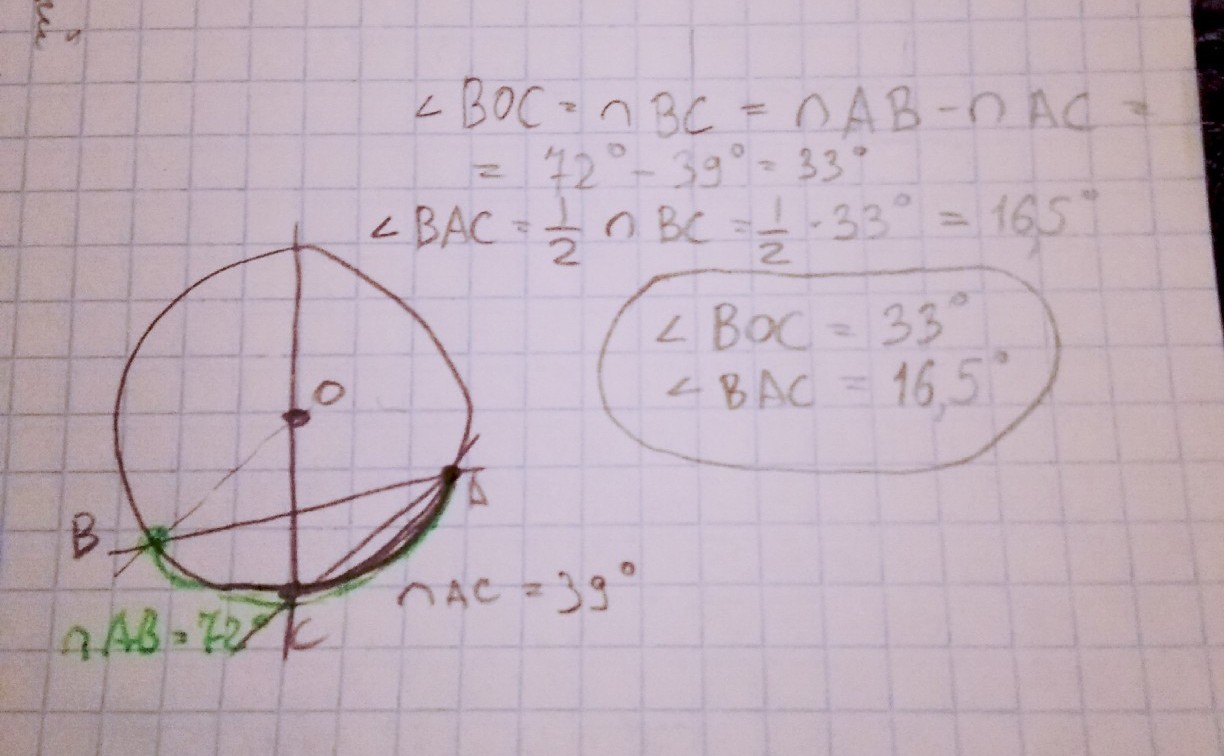 ∠BOC = ∩BC = ∩AB - ∩AC =
= 72° - 39° = 33°
∠BAC = 1/2 ∩BC = 1/2 · 33° = 16,5°
∠BOC = 33°
∠BAC = 16,5°
O
A
B
∩AC = 39°
∩AB = 72°
C